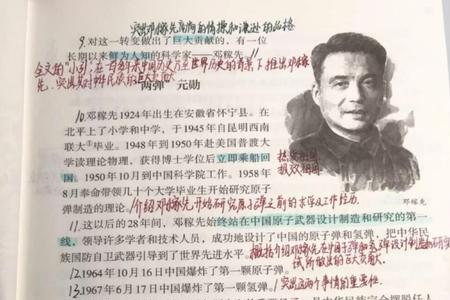 突出邓稼先高尚的情操和深沉的品格
9.对这一转变做出了巨大贡献的,有一位
长期以来鲜为人知的科学家——邓稼先。
全文的"小引":在百余年中国历史乃至世界历史的背景下推出邓稼
先,突出其对中华民族的巨大贡献。
两弹元勋
10.邓稼先1924年出生在安徽省怀宁县。在
北平上了小学和中学,于1945年自昆明西南
联大①毕业。1948年到1950年赴美国普渡大
学读理论物理,获得博士学位后立即乘船回
国,1950年10月到中国科学院工作。1958年
8月奉命带领几十个大学毕业生开始研究原子
弹制造的理论。
介绍邓稼先开始研究原子弹之前的求学及工作经历。
报效祖国
邓稼先
11.这以后的28年间,邓稼先始终站在中国原子武器设计制造和研究的第一
线,领导许多学者和技术人员,成功地设计了中国的原子弹和氢弹,把中华民
族国防自卫武器引导到了世界先进水平。
概括介绍邓稼先在中国原子弹、氢弹设计制造和研究
所做出的巨大贡献。
12.1964年10月16日中国爆炸了第一颗原子弹。
13.1967年6月17日中国爆炸了第一颗氢弹。
突出这个事情的重要性。